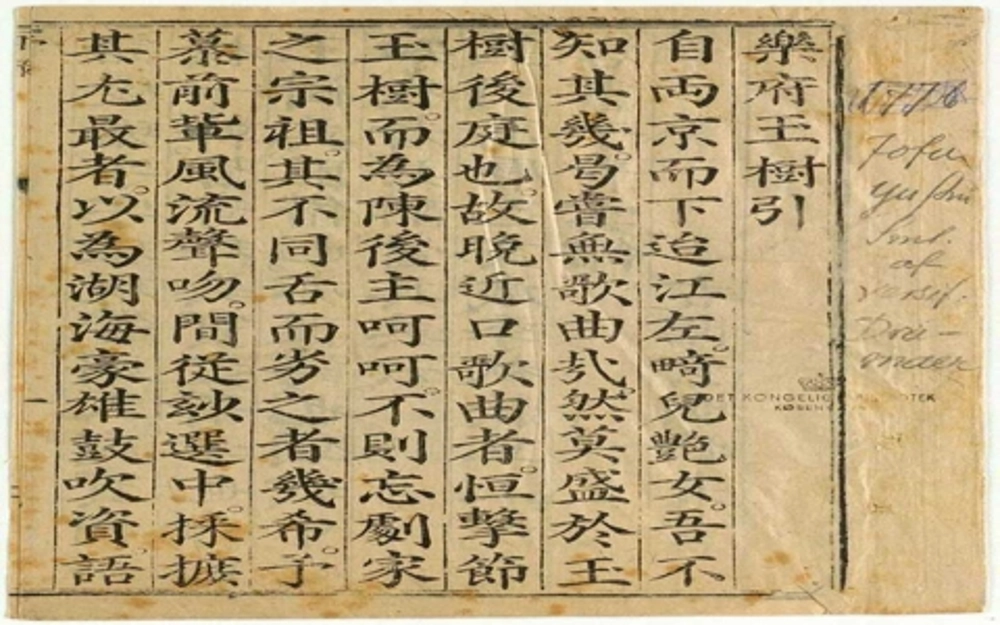 樂府玉樹引
自兩京而下迨江左。畸兒艷女。吾不
知其幾。曷嘗無歌曲㢤。然莫盛於玉
樹後庭也。故晚近口歌曲者。恒擊節
玉樹。而為陳後主呵呵。不則忘劇家
之宗祖。其不同舌而劣之者幾希。予
慕前軰風流聲吻。間從紗選中。採摭
其尤最者。以為湖海豪雄鼓吹資。語
1774
Yofu
yu shu
Sml.
af
versif.
Dra-
maer
DET KONGELIGE BIBLIOTEK
KØBENHAVN